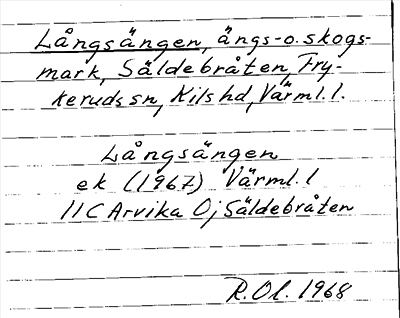 Långsängen, ängs-o.skogs-
mark, Säldebråten, Fry-
keruds sn, Kils hd, Värml.l.
Långsängen
ek (1967) Värml.l
11C Arvika Öj Säldebråten
R.Ol. 1968